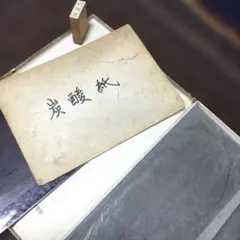 炭酸紙